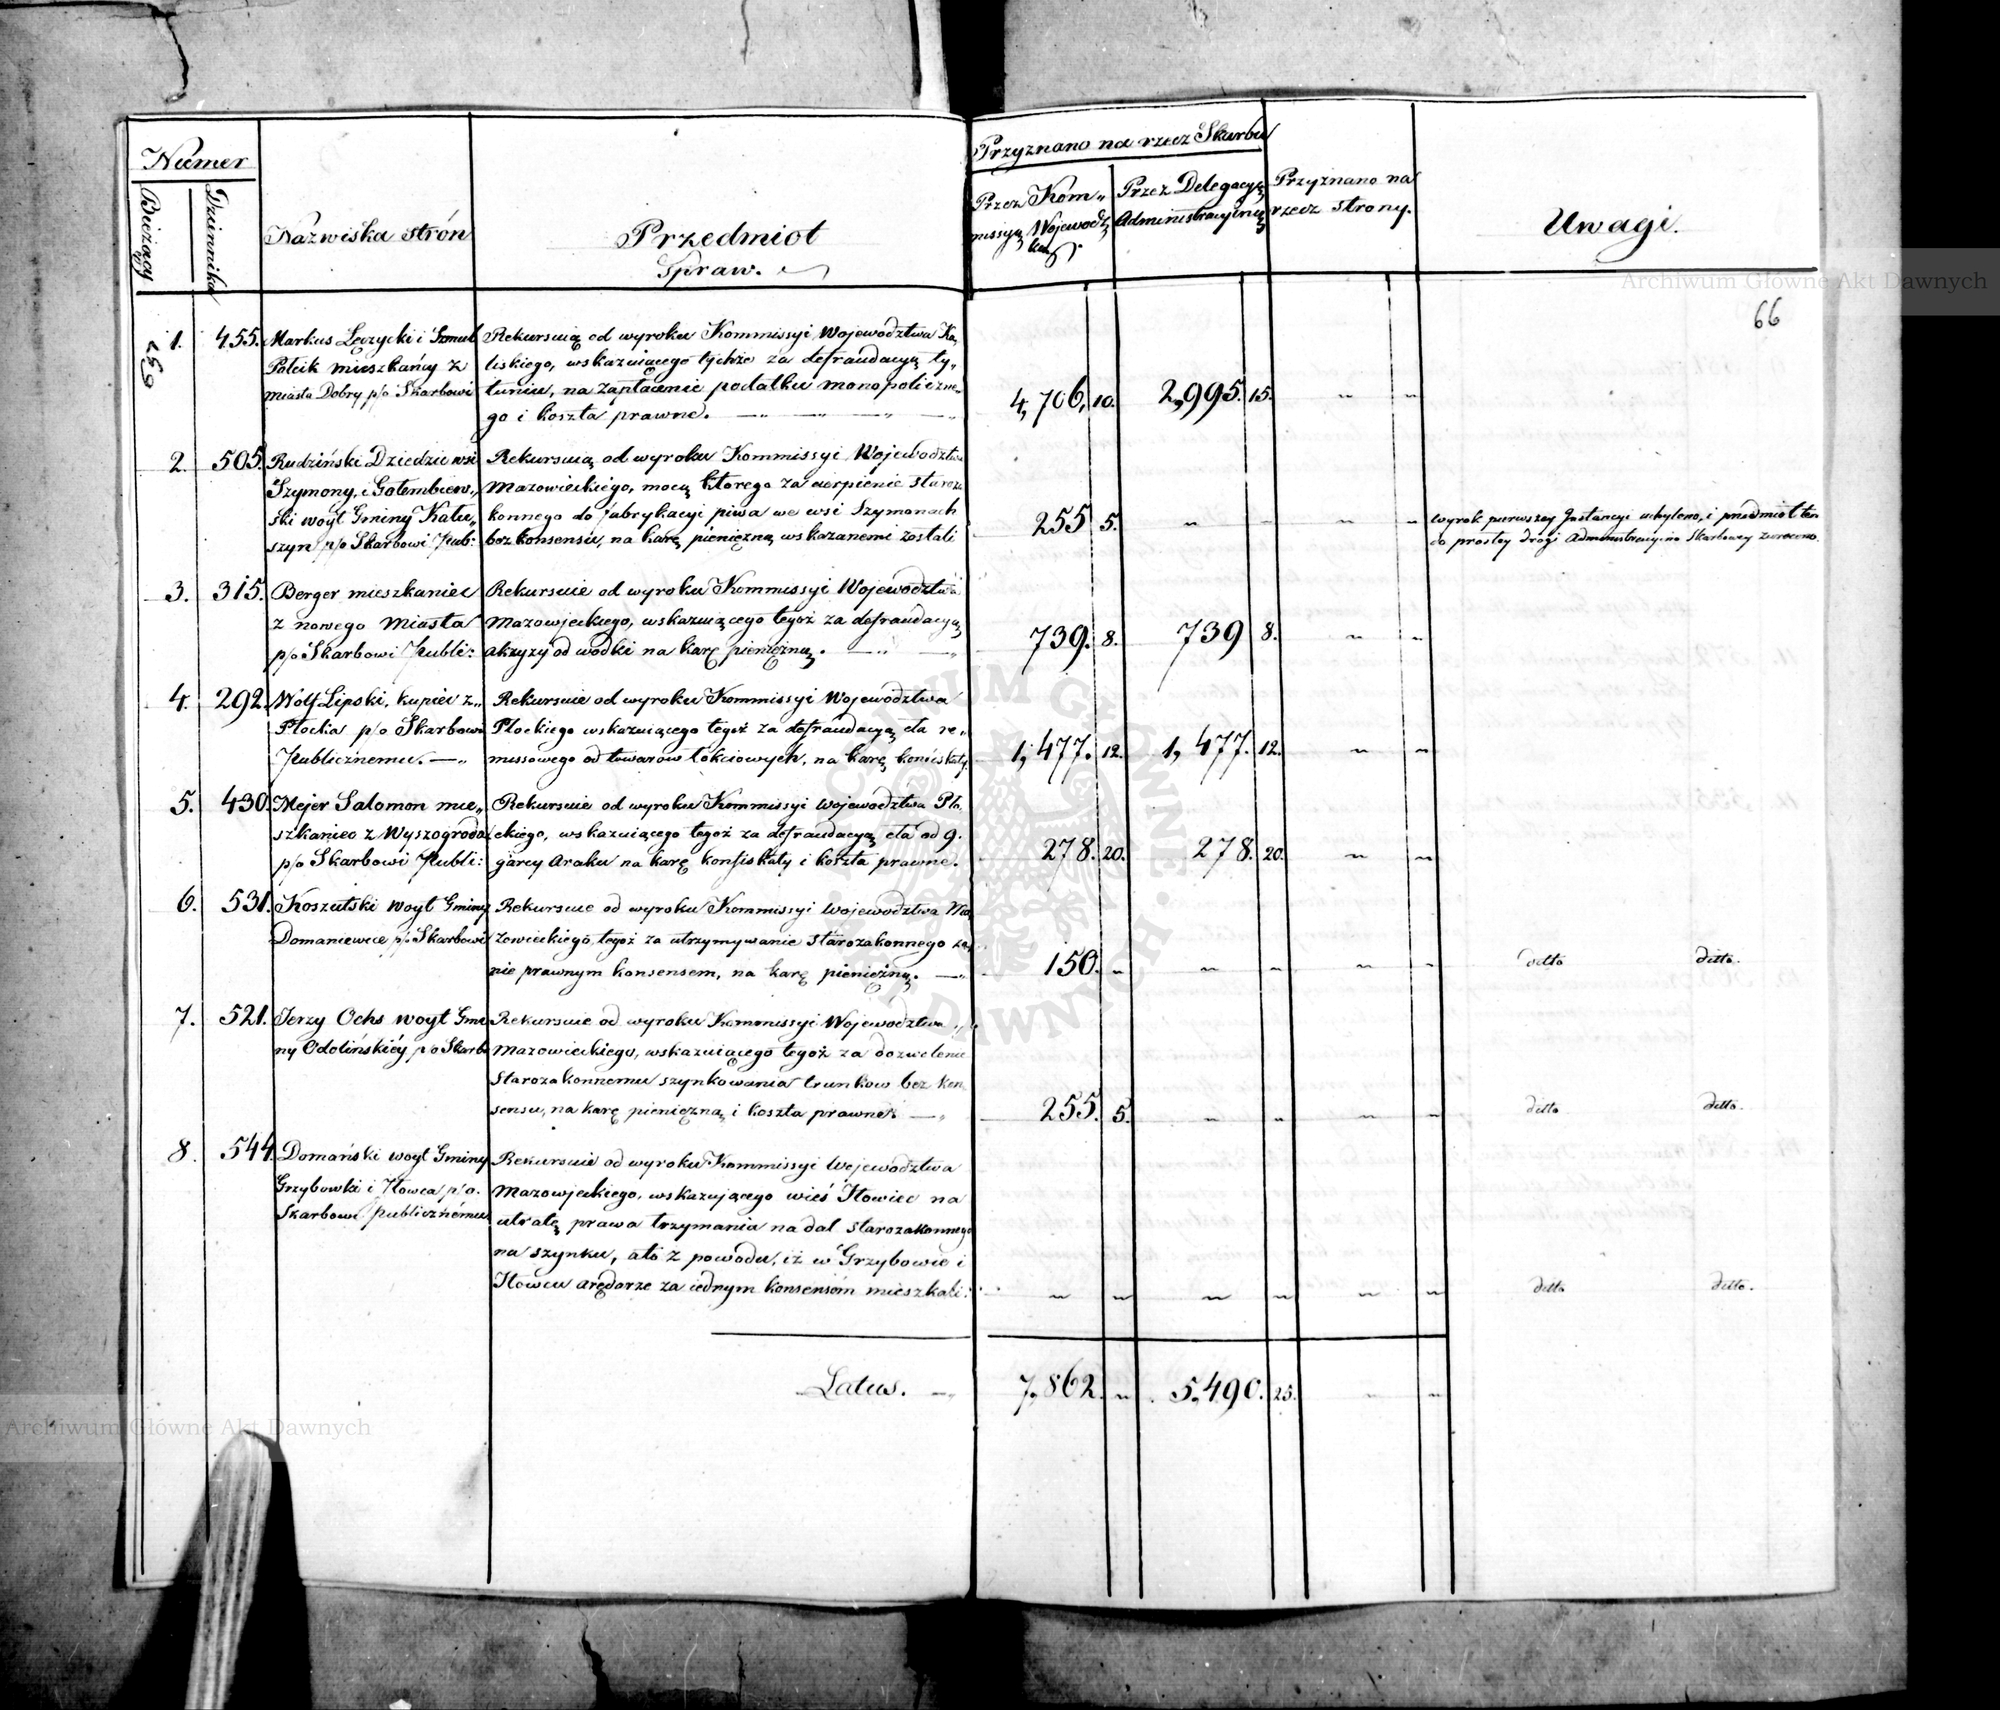 Numer
Bieżący
Dziennika
Nazwiska strón
Przedmiot
Spraw.
Przyznano na rzecz Skarbu
Przez Kom„
missyą Wojewódz
ką
Przez Delegacyą
Administracyjną
Przyznano na
rzecz strony.
Uwagi.
66
1. 455. Markus Łęczycki i Szmul
Polcik mieszkańcy z
miasta Dobry p/o Skarbowi
Rekursuią od wyroku Kommissyi Województwa Ka„
liskiego, wskazuiącego tychże za defraudacyą ty„
tuniu, na zapłacenie podatku monopoliczne„
go i koszta prawne.
4,706. 10. 2,995. 15.
2. 505. Rudziński Dziedzic wsi
Szymony, i Gołembiew„
ski woyt Gminy Kału„
szyn p/o Skarbowi Publ:
Rekursuią od wyroku Kommissyi Województwa
Mazowieckiego, mocą którego za cierpienie staroza
konnego do fabrykacyi piwa we wsi Szymonach
bez konsensu, na karę pieniężną wskazanemi zostali
255 5.
Wyrok pierwszey Instancyi uchylono, i przedmiot ten
do prostey drogi Administracyino Skarbowey zwrócono.
3. 315. Berger mieszkaniec
z nowego Miasta
p/o Skarbowi Publi:
Rekursuie od wyroku Kommissyi Województwa
Mazowjeckiego, wskazuiącego tegoż za defraudacyą
akzyzy od wodki na karę pieniężną.
739. 8. 739 8.
4. 292. Wolf Lipski, kupiec z„
Płocka p/o Skarbowi
Publicznemu.
Rekursuie od wyroku Kommissyi Województwa
Płockiego wskazuiącego tegoż za defraudacyą cła re„
missowego od towarów łokciowych, na karę konfiskaty.
1,477. 12. 1,477. 12.
5. 430. Mejer Salomon mie„
szkaniec z Wyszogroda
p/o Skarbowi Publi:
Rekursuie od wyroku Kommissyi Województwa Pło„
ckiego, wskazuiącego tegoż za defraudacyą cła od 9.
garcy Araku na karę konfiskaty i koszta prawne.
278. 20. 278. 20.
6. 531. Koszutski woyt Gminy
Domaniewice p/o Skarbowi
Rekursuie od wyroku Kommissyi Województwa Ma„
zowieckiego, tegoż za utrzymywanie starozakonnego za„
nie prawnym konsensem, na karę pieniężną.
150.
ditto ditto.
7. 521. Jerzy Ochs woyt Gmi
ny Odolińskiéy p/o Skarb
Rekursuie od wyroku Kommissyi Województwa
Mazowieckiego, wskazuiącego tegoż za dozwolenie
Starozakonnemu szynkowania trunkow bez kon
sensu, na karę pieniężną i koszta prawne.
255. 5.
ditto ditto.
8. 544. Domański woyt Gminy
Grzybowki i Iłowca p/o.
Skarbowi publicznému
Rekursuie od wyroku Kommissyi Województwa
Mazowjeckiego, wskazującego wieś Iłowiec na
utratę prawa trzymania nadal starozakonnego
na szynku, a to z powodu, iż w Grzybowie i
Iłowcu arędarze za iednym konsensóm mieszkali:
ditto ditto.
Latus. 7,862. 5,490. 25.
Archiwum Główne Akt Dawnych
Archiwum Główne Akt Dawnych